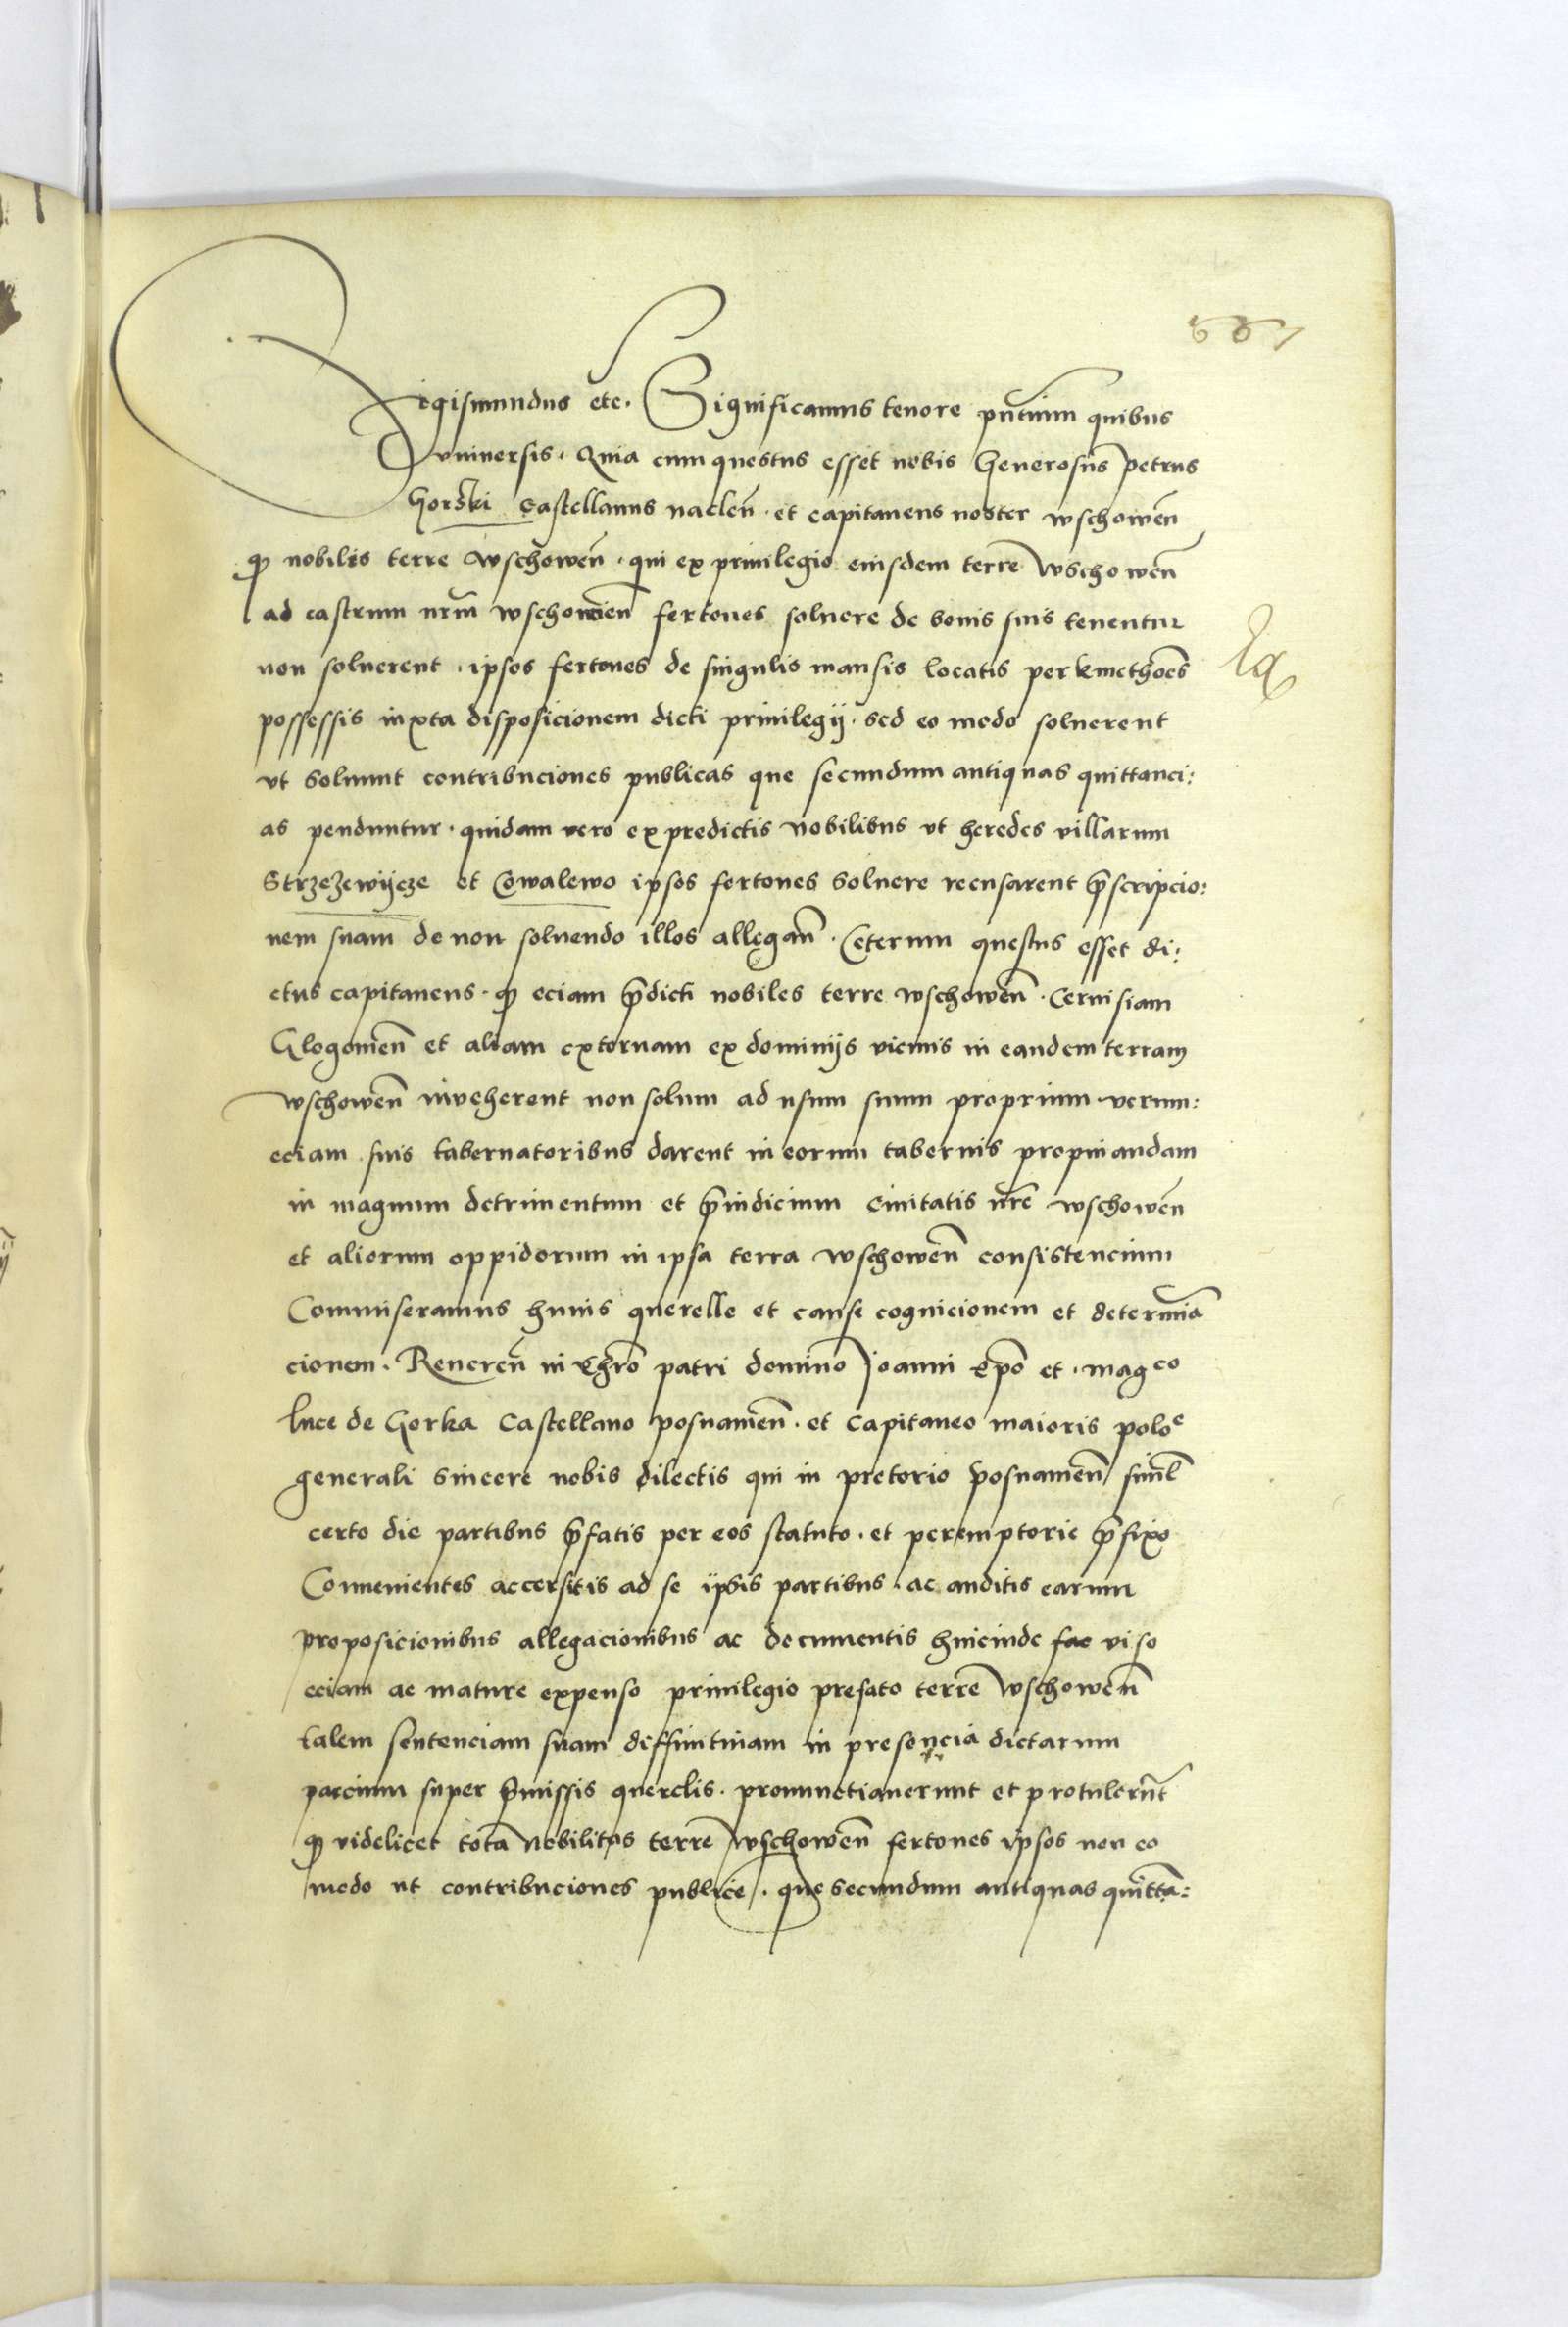 Sigismundus etc. Significamus tenore pñtium quibus
vniuersis. Quia cum questus esset nobis Generosus petrus
Gorski Castellanus naclen̄. et capitaneus noster wschowen̄
ꝙ nobiles terre wschowen̄. qui ex priuilegio eiusdem terre wschowen̄
ad castrum nrm̄ wschowien̄ fertones soluere de bonis suis tenentur
non soluerent. ipsos fertones de singulis mansis locatis per kmethoēs
possessis iuxta disposicionem dicti priuilegij. sed eo modo soluerent
vt soluunt contribuciones publicas que secundum antiquas quittanci:
as penduntur. quidam vero ex predictis nobilibus vt heredes villarum
Strzezewijcze et Cowalewo ipsos fertones soluere recusarent p̄scripcio:
nem suam de non soluendo illos allegan̄. Ceterum questus esset di:
ctus capitaneus. ꝙ eciam p̄dicti nobiles terre wschowen̄. Ceruisiam
Glogouien̄ et aliam externam ex dominijs vicinis in eandem terram
wschowen̄ inveherent non solum ad usum suum proprium verum:
eciam suis tabernatoribus darent in eorum tabernis propinandam
in magnum detrimentum et p̄iudicium Ciuitatis nrē wschowen̄
et aliorum oppidorum in ipsa terra wschowen̄ consistencium
Commiseramus huius querelle et cause cognicionem et determinā
cionem. Reueren̄ in Chrō patri domino Joanni Epō et. mag^co
luce de Gorka Castellano posnanien̄. et Capitaneo maioris polo^e
generali sincere nobis dilectis qui in pretorio posnanien̄ simul
certo die partibus p̄fatis per eos statuto. et peremptorie p̄fixo
Conuenientes accersitis ad se ipsis partibus. ac auditis earum
proposicionibus allegacionibus ac documentis hincinde fac viso
eciam ac mature expenso priuilegio prefato terre wschowen̄
talem sentenciam suam diffinitiuam in presencia dictarum
parcium super p̄missis querelis. pronunctiauerunt et protulerūt
ꝙ videlicet tota Nobilitas terre wschowen̄ fertones ipsos non eo
modo ut contribuciones publice. que secundum antiquas quittā: